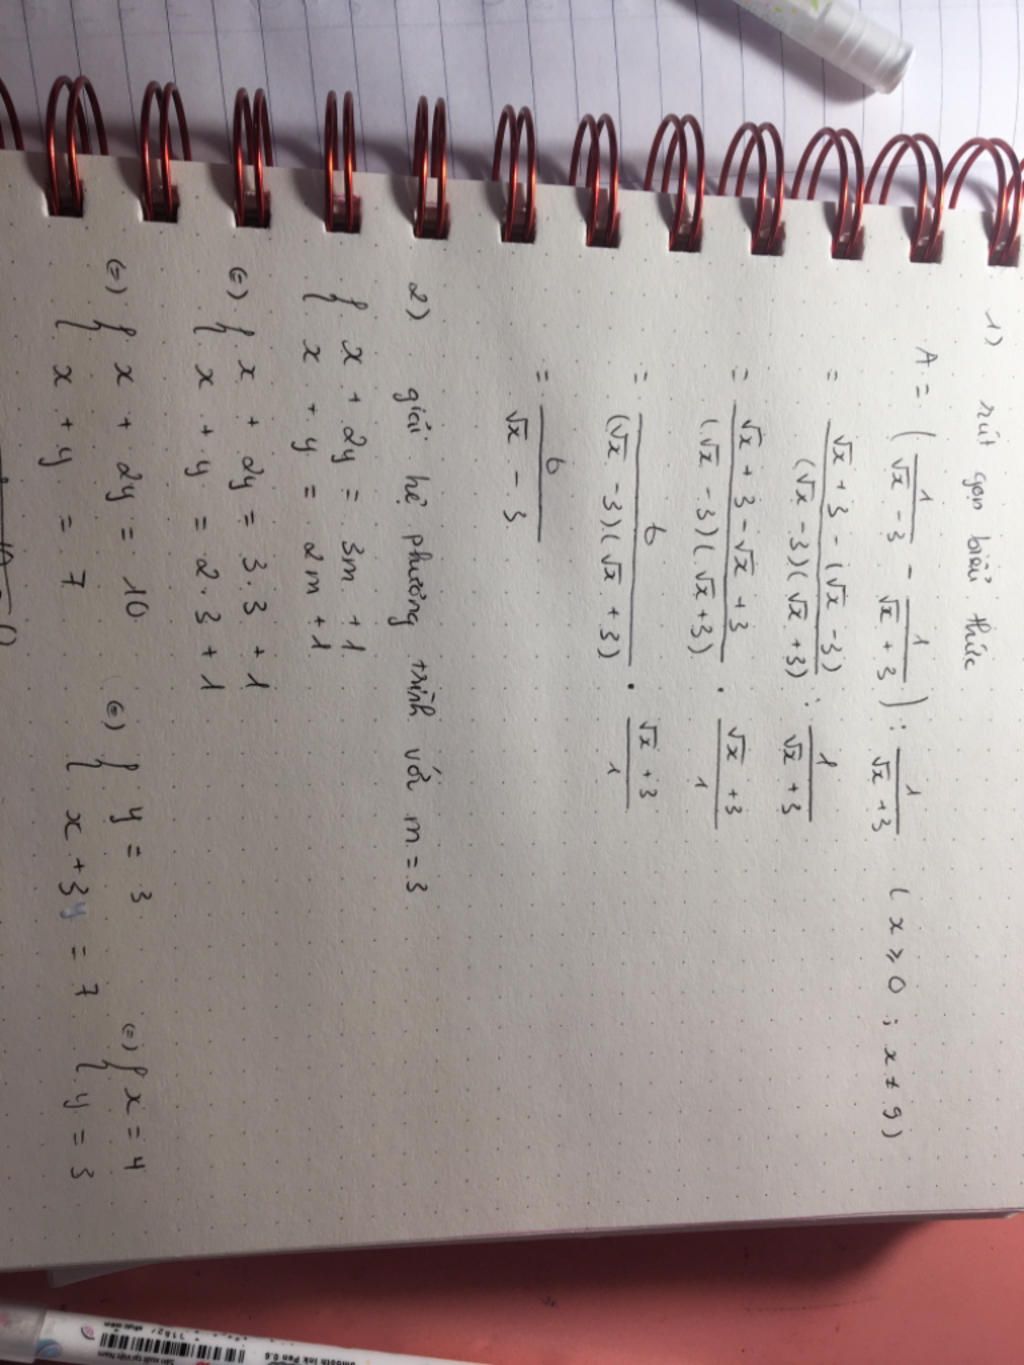 1) rút gọn biểu thức
A = ( 1/(√x - 3) - 1/(√x + 3) ) : 1/(√x + 3) ( x ≥ 0 ; x ≠ 9 )
= (√x + 3 - (√x - 3))/((√x - 3)(√x + 3)) : 1/(√x + 3)
= (√x + 3 - √x + 3)/((√x - 3)(√x + 3)) . (√x + 3)/1
= 6/((√x - 3).(√x + 3)) . (√x + 3)/1
= 6/(√x - 3)
2) giải hệ phương trình với m = 3
{ x + 2y = 3m + 1
{ x + y = 2m + 1
(=) { x + 2y = 3.3 + 1
{ x + y = 2.3 + 1
(=) { x + 2y = 10 (=) { y = 3 (=) { x = 4
{ x + y = 7 { x + 3y = 7 { y = 3